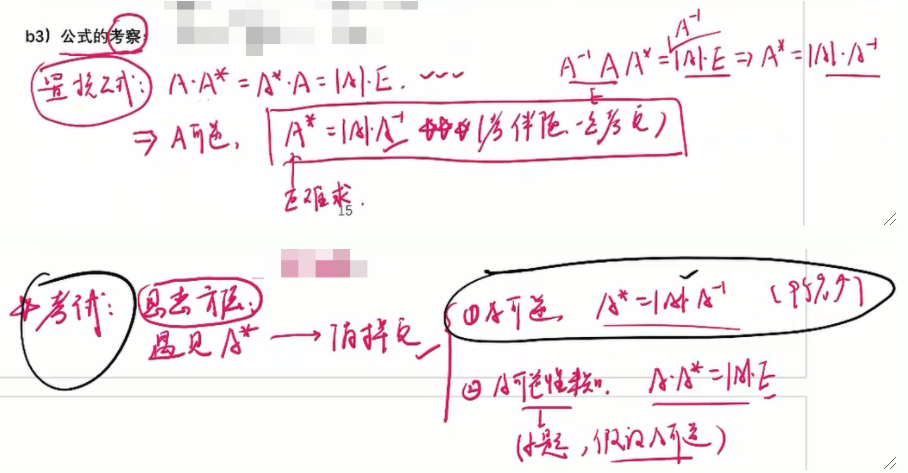 b3) 公式的考察:
置换公式: A·A* = A*·A = |A|·E.
A⁻¹ A A* = A⁻¹ |A|·E ⇒ A* = |A|·A⁻¹
E
⇒ A可逆, A* = |A|·A⁻¹ (考伴随一定考它)
巨难求.
15
考试: 思考方向: 遇见 A* → 消掉它
① A可逆, A* = |A| A⁻¹ (95%
② A可逆性未知. A·A* = |A|·E
(小题, 假设A可逆)